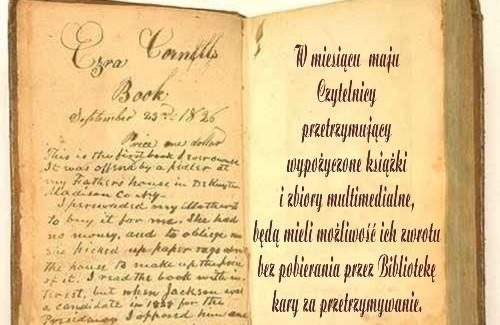 Ezra Cornell's
Book
September 23rd 1826
Price one dollar
This is the first book I ever owned
It was offered by a pedler at
my Father's house in DeRuyter
Madison County
I persuaded my Mother
to buy it for me. She had
no money, and to oblige me
she picked up paper rags
the house to make up the
of it. I read the book with in-
terest, but when Jackson was
a candidate in 1828 for the
Presidency I opposed him and
W miesiącu maju
Czytelnicy
przetrzymujący
wypożyczone książki
i zbiory multimedialne,
będą mieli możliwość ich zwrotu
bez pobierania przez Bibliotekę
kary za przetrzymywanie.